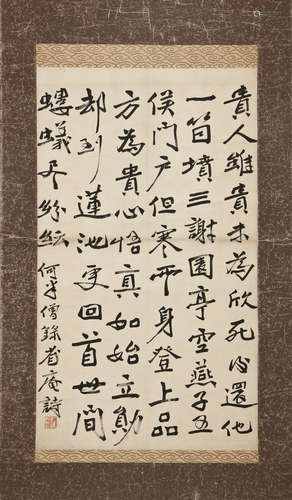 貴人雖貴未為欣死後還他
一箇墳三謝園亭空燕子五
侯門戶但寒雲身登上品
方為貴心悟真如始立勛
却到蓮池更回首世間
螻蟻尽紛紜 何僧錄省庵詩